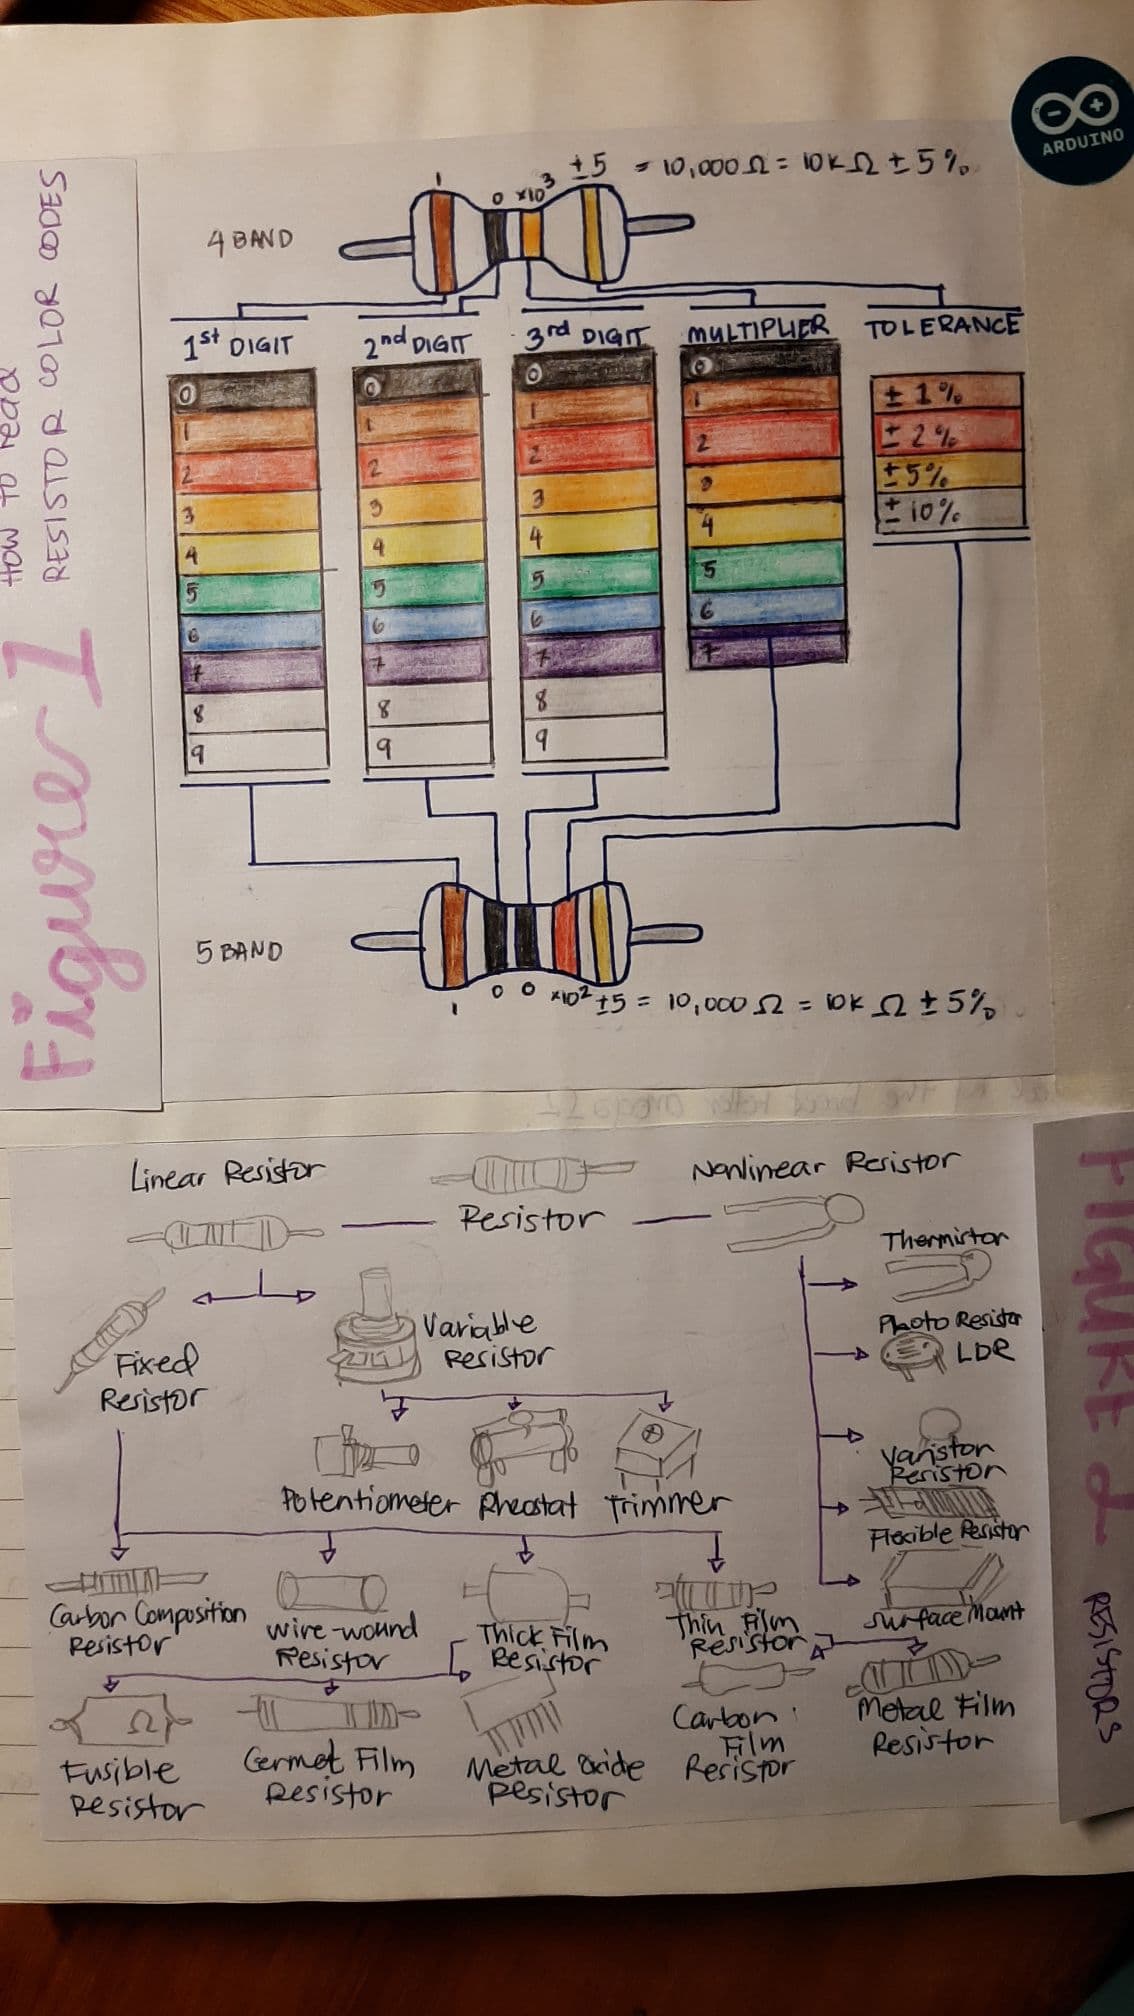 ARDUINO
Figure 1
HOW TO read
RESISTOR COLOR CODES
4 BAND
1 0 x10³ ±5 = 10,000 Ω = 10K Ω ± 5%
1st DIGIT
0
1
2
3
4
5
6
7
8
9
2nd DIGIT
0
1
2
3
4
5
6
7
8
9
3rd DIGIT
0
1
2
3
4
5
6
7
8
9
MULTIPLIER
0
1
2
3
4
5
6
7
TOLERANCE
± 1%
± 2%
± 5%
± 10%
5 BAND
1 0 0 x10² ±5 = 10,000 Ω = 10K Ω ± 5%
FIGURE 2
RESISTORS
Linear Resistor
Resistor
Nonlinear Resistor
Fixed
Resistor
Variable
Resistor
Potentiometer
Rheostat
Trimmer
Thermistor
Photo Resistor
LDR
Varistor
Resistor
Flexible Resistor
Surface Mount
Carbon Composition
Resistor
Wire-wound
Resistor
Thick Film
Resistor
Thin Film
Resistor
Fusible
Resistor
Ω
Cermet Film
Resistor
Metal Oxide
Resistor
Carbon
Film
Resistor
Metal Film
Resistor